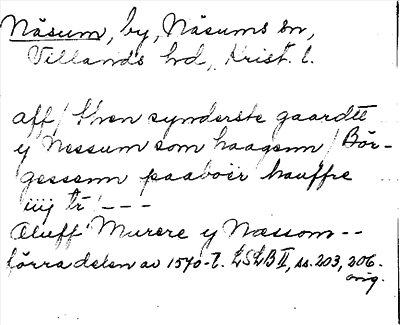 Näsum, by, Näsums sn,
Villands hd, Krist. l.
aff / then synderste gaardtt
y Nessum som haagenn / Bör-
gessenn paaboer hauffre
iiij tr - - -
Oluff Murere y Næssom - -
förra delen av 1570-t. LSLB II, ss. 203, 206.
orig.